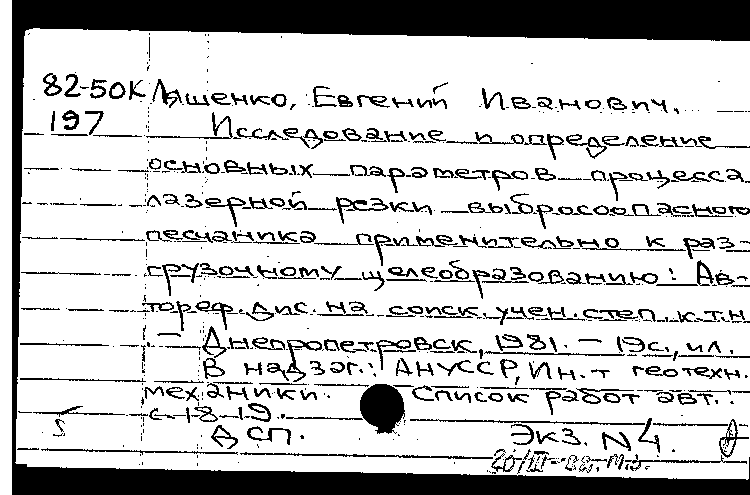 82-50К Ляшенко, Евгений Иванович.
197 Исследование и определение
основных параметров процесса
лазерной резки выбросоопасного
песчаника применительно к раз-
грузочному щелеобразованию: Ав-
тореф. дис. на соиск. учен. степ. к.т.н.
.- Днепропетровск, 1981. - 19с., ил.
В надзаг.: АНУССР, Ин.т геотехн.
механики. Список работ авт.:
с. 18-19.
ДСП. Экз. N4.
20/III-82.